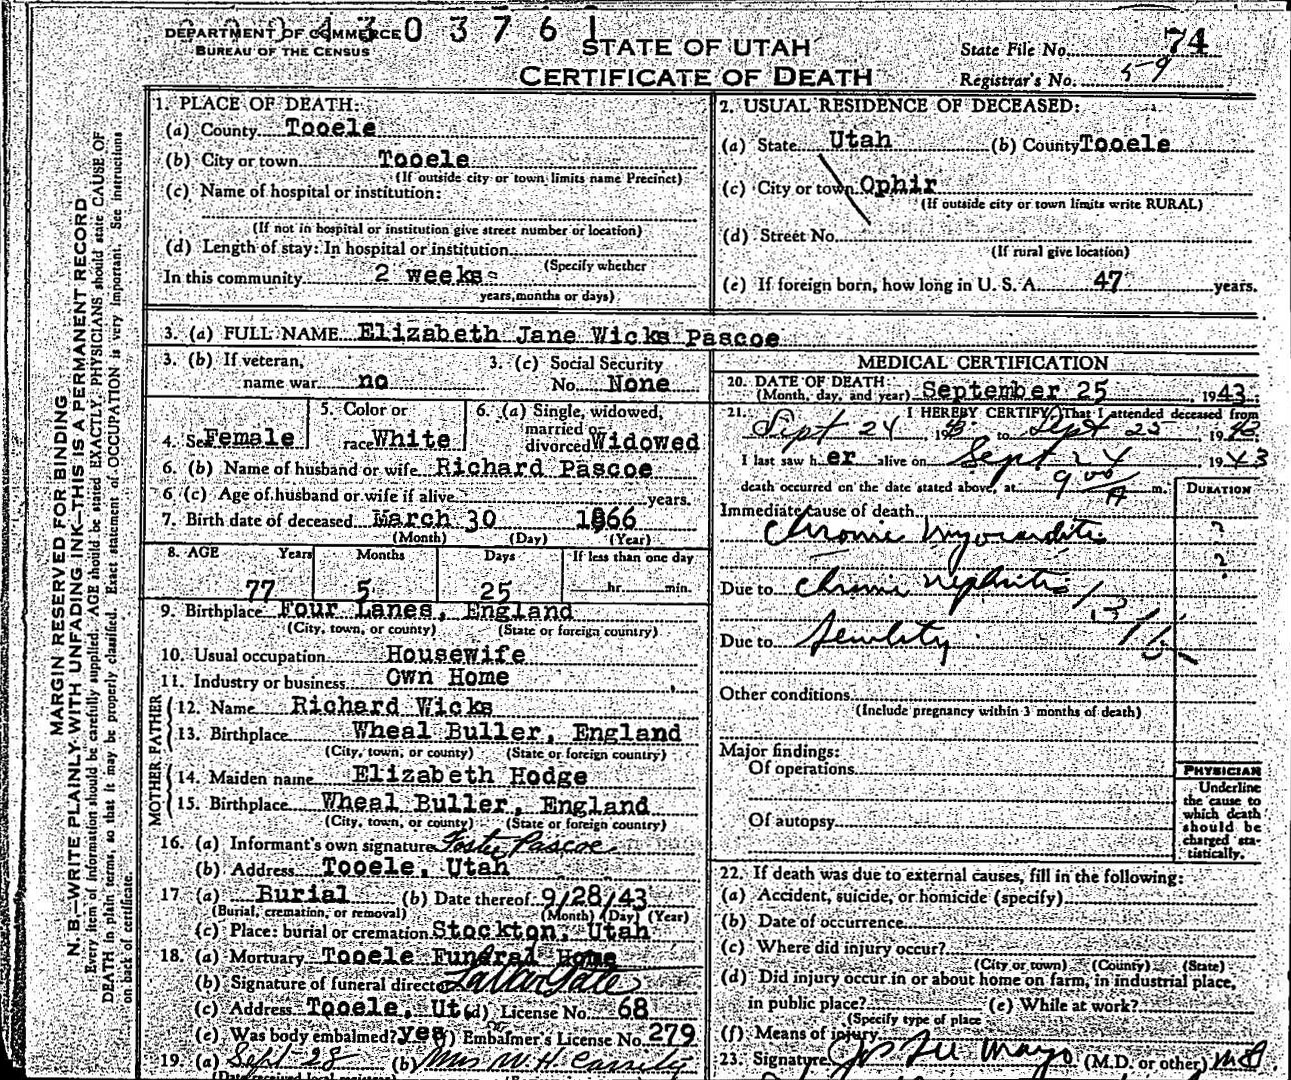 DEPARTMENT OF COMMERCE
BUREAU OF THE CENSUS
0 3 7 6 1
STATE OF UTAH
CERTIFICATE OF DEATH
State File No. 74
Registrar's No. 59
MARGIN RESERVED FOR BINDING
N. B.—WRITE PLAINLY WITH UNFADING INK—THIS IS A PERMANENT RECORD
Every item of information should be carefully supplied. AGE should be stated EXACTLY. PHYSICIANS should state CAUSE OF
DEATH in plain terms, so that it may be properly classified. Exact statement of OCCUPATION is very important. See instructions
on back of certificate.
1. PLACE OF DEATH:
(a) County Tooele
(b) City or town Tooele
(If outside city or town limits name Precinct)
(c) Name of hospital or institution:
(If not in hospital or institution give street number or location)
(d) Length of stay: In hospital or institution
(Specify whether
In this community 2 weeks
years, months or days)
2. USUAL RESIDENCE OF DECEASED:
(a) State Utah (b) County Tooele
(c) City or town Ophir
(If outside city or town limits write RURAL)
(d) Street No.
(If rural give location)
(e) If foreign born, how long in U. S. A. 47 years.
3. (a) FULL NAME Elizabeth Jane Wicks Pascoe
3. (b) If veteran, name war no
3. (c) Social Security No. None
4. Sex Female
5. Color or race White
6. (a) Single, widowed, married or divorced Widowed
6. (b) Name of husband or wife Richard Pascoe
6 (c) Age of husband or wife if alive years.
7. Birth date of deceased March 30 1866
(Month) (Day) (Year)
8. AGE Years Months Days If less than one day
77 5 25 hr. min.
9. Birthplace Four Lanes, England
(City, town, or county) (State or foreign country)
10. Usual occupation Housewife
11. Industry or business Own Home
FATHER
12. Name Richard Wicks
13. Birthplace Wheal Buller, England
(City, town, or county) (State or foreign country)
MOTHER
14. Maiden name Elizabeth Hodge
15. Birthplace Wheal Buller, England
(City, town, or county) (State or foreign country)
16. (a) Informant's own signature Foster Pascoe
(b) Address Tooele, Utah
17 (a) Burial (b) Date thereof 9/28/43
(Burial, cremation, or removal) (Month) (Day) (Year)
(c) Place: burial or cremation Stockton, Utah
18. (a) Mortuary Tooele Funeral Home
(b) Signature of funeral director
(c) Address Tooele, Ut. (d) License No. 68
(e) Was body embalmed? yes (f) Embalmer's License No. 279
19. (a) Sept-28 (b) Mrs W. H. Cassity
MEDICAL CERTIFICATION
20. DATE OF DEATH:
(Month, day, and year) September 25, 1943
21. I HEREBY CERTIFY, That I attended deceased from
Sept 24, 1943 to Sept 25, 1943
I last saw her alive on Sept 24 1943
death occurred on the date stated above, at 9 00 A m.
DURATION
Immediate cause of death
Chronic Myocarditis ?
?
Due to Chronic nephritis
Due to Senility
Other conditions
(Include pregnancy within 3 months of death)
Major findings:
Of operations
Of autopsy
PHYSICIAN
Underline
the cause to
which death
should be
charged sta-
tistically.
22. If death was due to external causes, fill in the following:
(a) Accident, suicide, or homicide (specify)
(b) Date of occurrence
(c) Where did injury occur?
(City or town) (County) (State)
(d) Did injury occur in or about home on farm, in industrial place,
in public place? (e) While at work?
(Specify type of place
(f) Means of injury
23. Signature Jos Lee Mayo (M.D. or other) MD